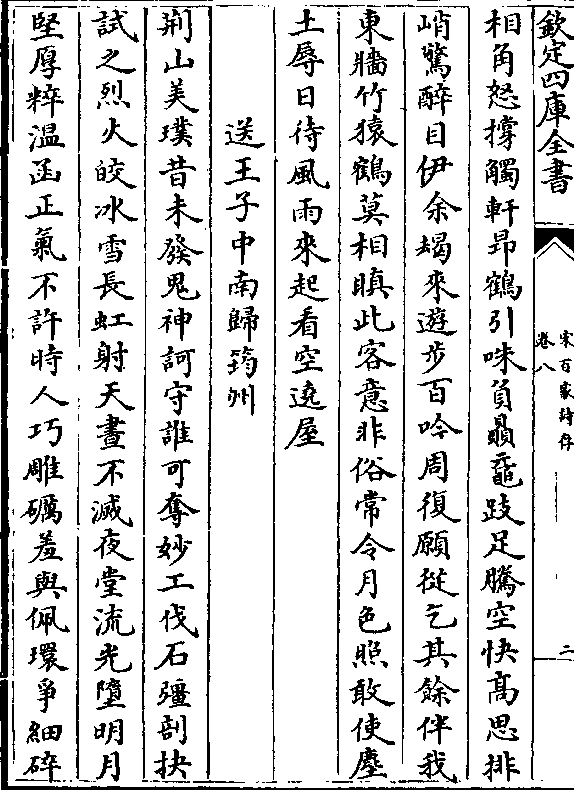 欽定四庫全書
宋百家詩存
卷八
二
相角怒撐觸軒昻鶴引咮負贔黿跂足騰空快髙思排
峭驚醉目伊余朅來遊步百吟周復願從乞其餘伴我
東牆竹猿鶴莫相瞋此客意非俗常令月色照敢使塵
土辱日待風雨來起看空遶屋
送王子中南歸筠州
荆山美璞昔未發鬼神訶守誰可奪妙工伐石彊剖抉
試之烈火皎冰雪長虹射天晝不滅夜堂流光墮明月
堅厚粹溫函正氣不許時人巧雕礪羞與佩環爭細碎